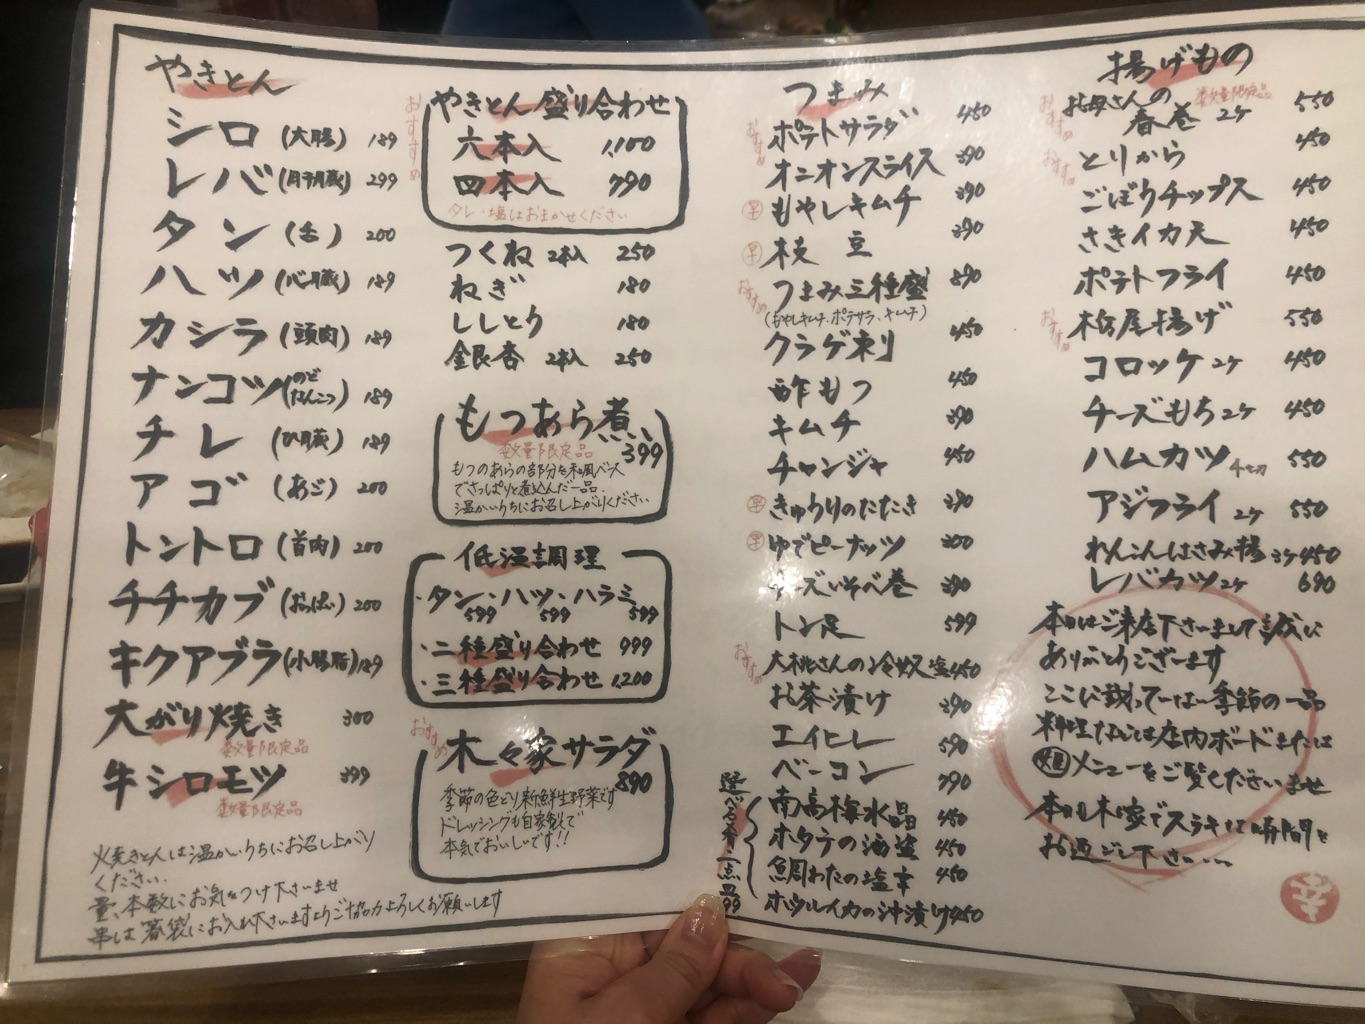 やきとん
シロ (大腸) 189
レバ (肝臓) 299
タン (舌) 200
ハツ (心臓) 189
カシラ (頭肉) 189
ナンコツ (のどなんこつ) 189
チレ (ひ臓) 189
アゴ (あご) 200
トントロ (首肉) 200
チチカブ (おっぱい) 200
キクアブラ (小腸脂) 189
大がり焼き 300
数量限定品
牛シロモツ 399
数量限定品
火焼きとんは温かいうちにお召し上がり
ください.
量、本数にお気をつけ下さいませ
串は箸袋にお入れ下さいますようご協力よろしくお願いします
おすすめ
やきとん盛り合わせ
六本入 1,100
四本入 790
タレ・塩はおまかせください
つくね 2本入 250
ねぎ 180
ししとう 180
銀杏 2本入 250
もつあら煮
数量限定品 399
もつのあらの部分を和風ベース
でさっぱりと煮込んだ一品.
温かいうちにお召し上がりください
低温調理
・タン・ハツ・ハラミ
599 599 599
・二種盛り合わせ 999
・三種盛り合わせ 1,200
おすすめ
木々家サラダ
890
季節の色どり新鮮生野菜です
ドレッシングも自家製で
本気でおいしいです!!
つまみ
おすすめ ポテトサラダ 450
オニオンスライス 390
早 もやしキムチ 390
早 枝豆 390
おすすめ つまみ三種盛 890
(もやしキムチ、ポテサラ、キムチ)
クラゲ刺 450
酢もつ 450
キムチ 390
チャンジャ 450
早 きゅうりのたたき 390
早 ゆでピーナッツ 300
チーズいそべ巻 390
トン足 599
おすすめ 大桃さんの冷奴 450
お茶漬け 390
エイヒレ 590
ベーコン 790
南高梅水晶 450
ホタテの海塩 450
鯛わたの塩辛 450
ホタルイカの沖漬け 450
揚げもの
おすすめ お母さんの 数量限定品
春巻 2ヶ 550
おすすめ とりから 450
ごぼうチップス 450
さきイカ天 450
ポテトフライ 450
おすすめ 栃尾揚げ 550
コロッケ 2ヶ 450
チーズもち 2ヶ 450
ハムカツ 550
アジフライ 2ヶ 550
れんこんはさみ揚 3ヶ 450
レバカツ 2ヶ 690
本日はご来店下さいまして誠に
ありがとうございます
ここに載っていない季節の一品
料理などは店内ボードまたは
メニューをご覧くださいませ
本日も木々家でステキな時間を
お過ごし下さい...